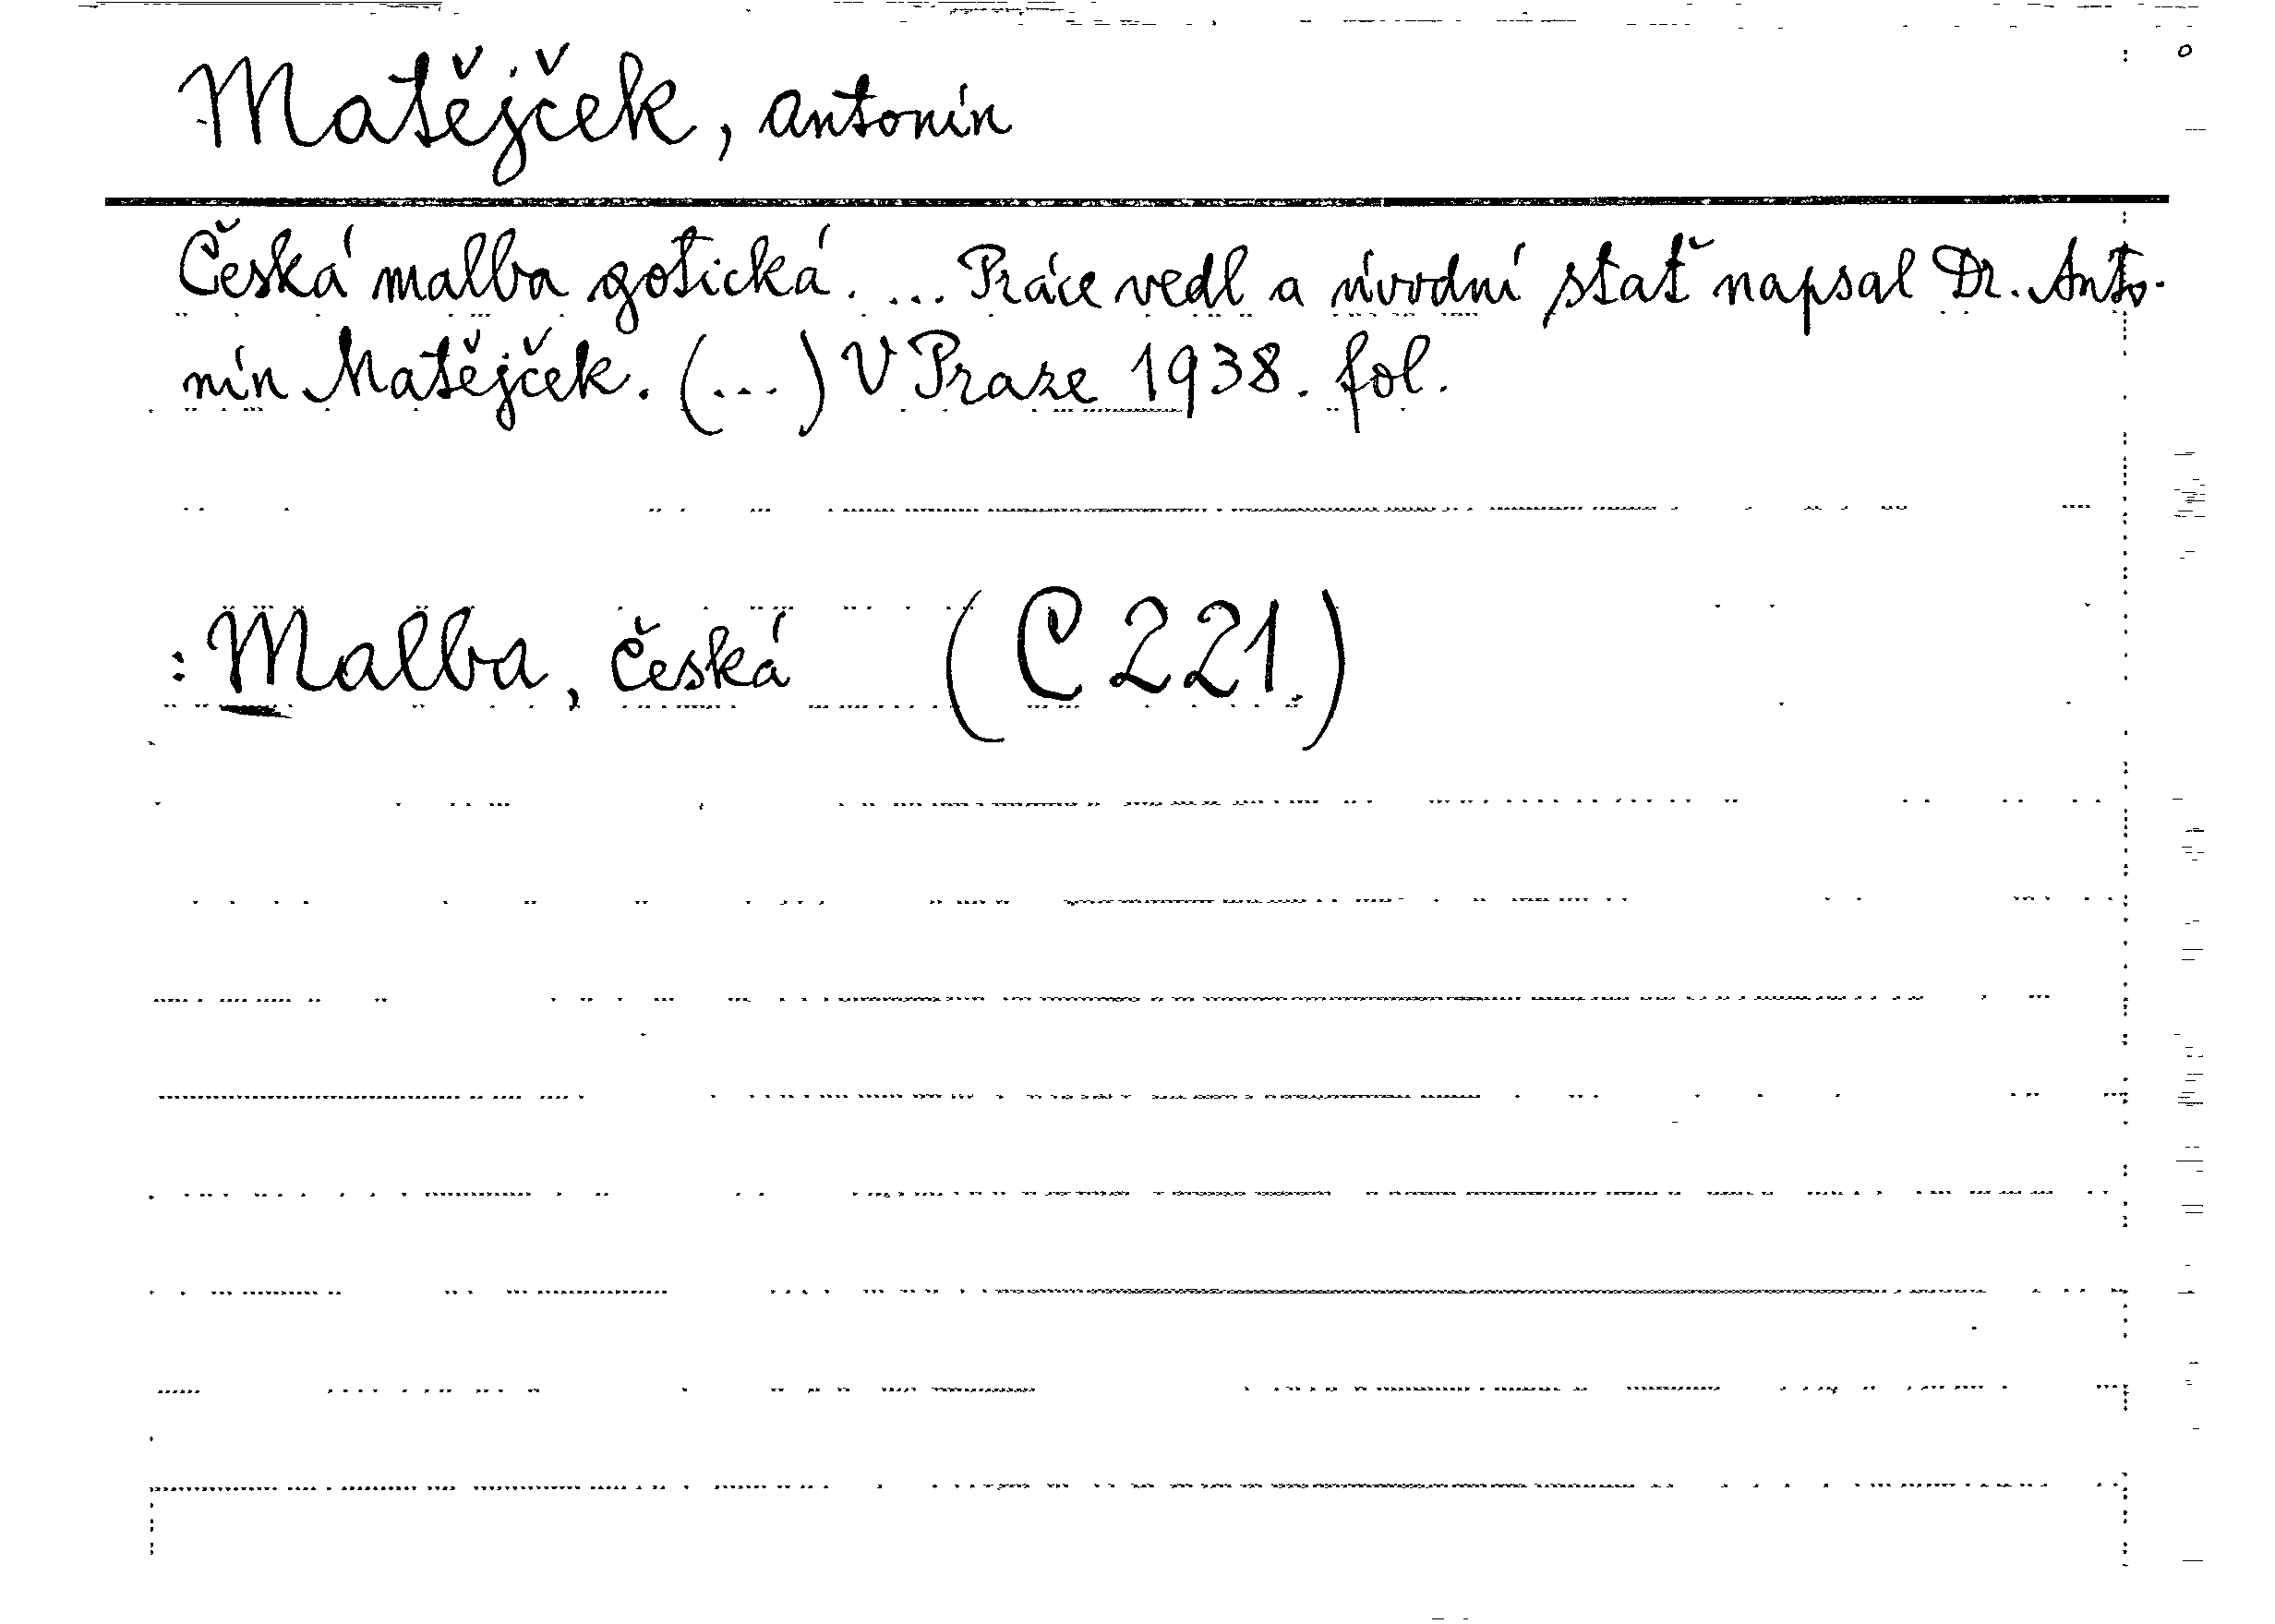 Matějček, Antonín
Česká malba gotická. ... Práce vedl a úvodní stať napsal Dr. Anto-
nín Matějček. (...) V Praze 1938. fol.
: Malba, česká (C 221.)